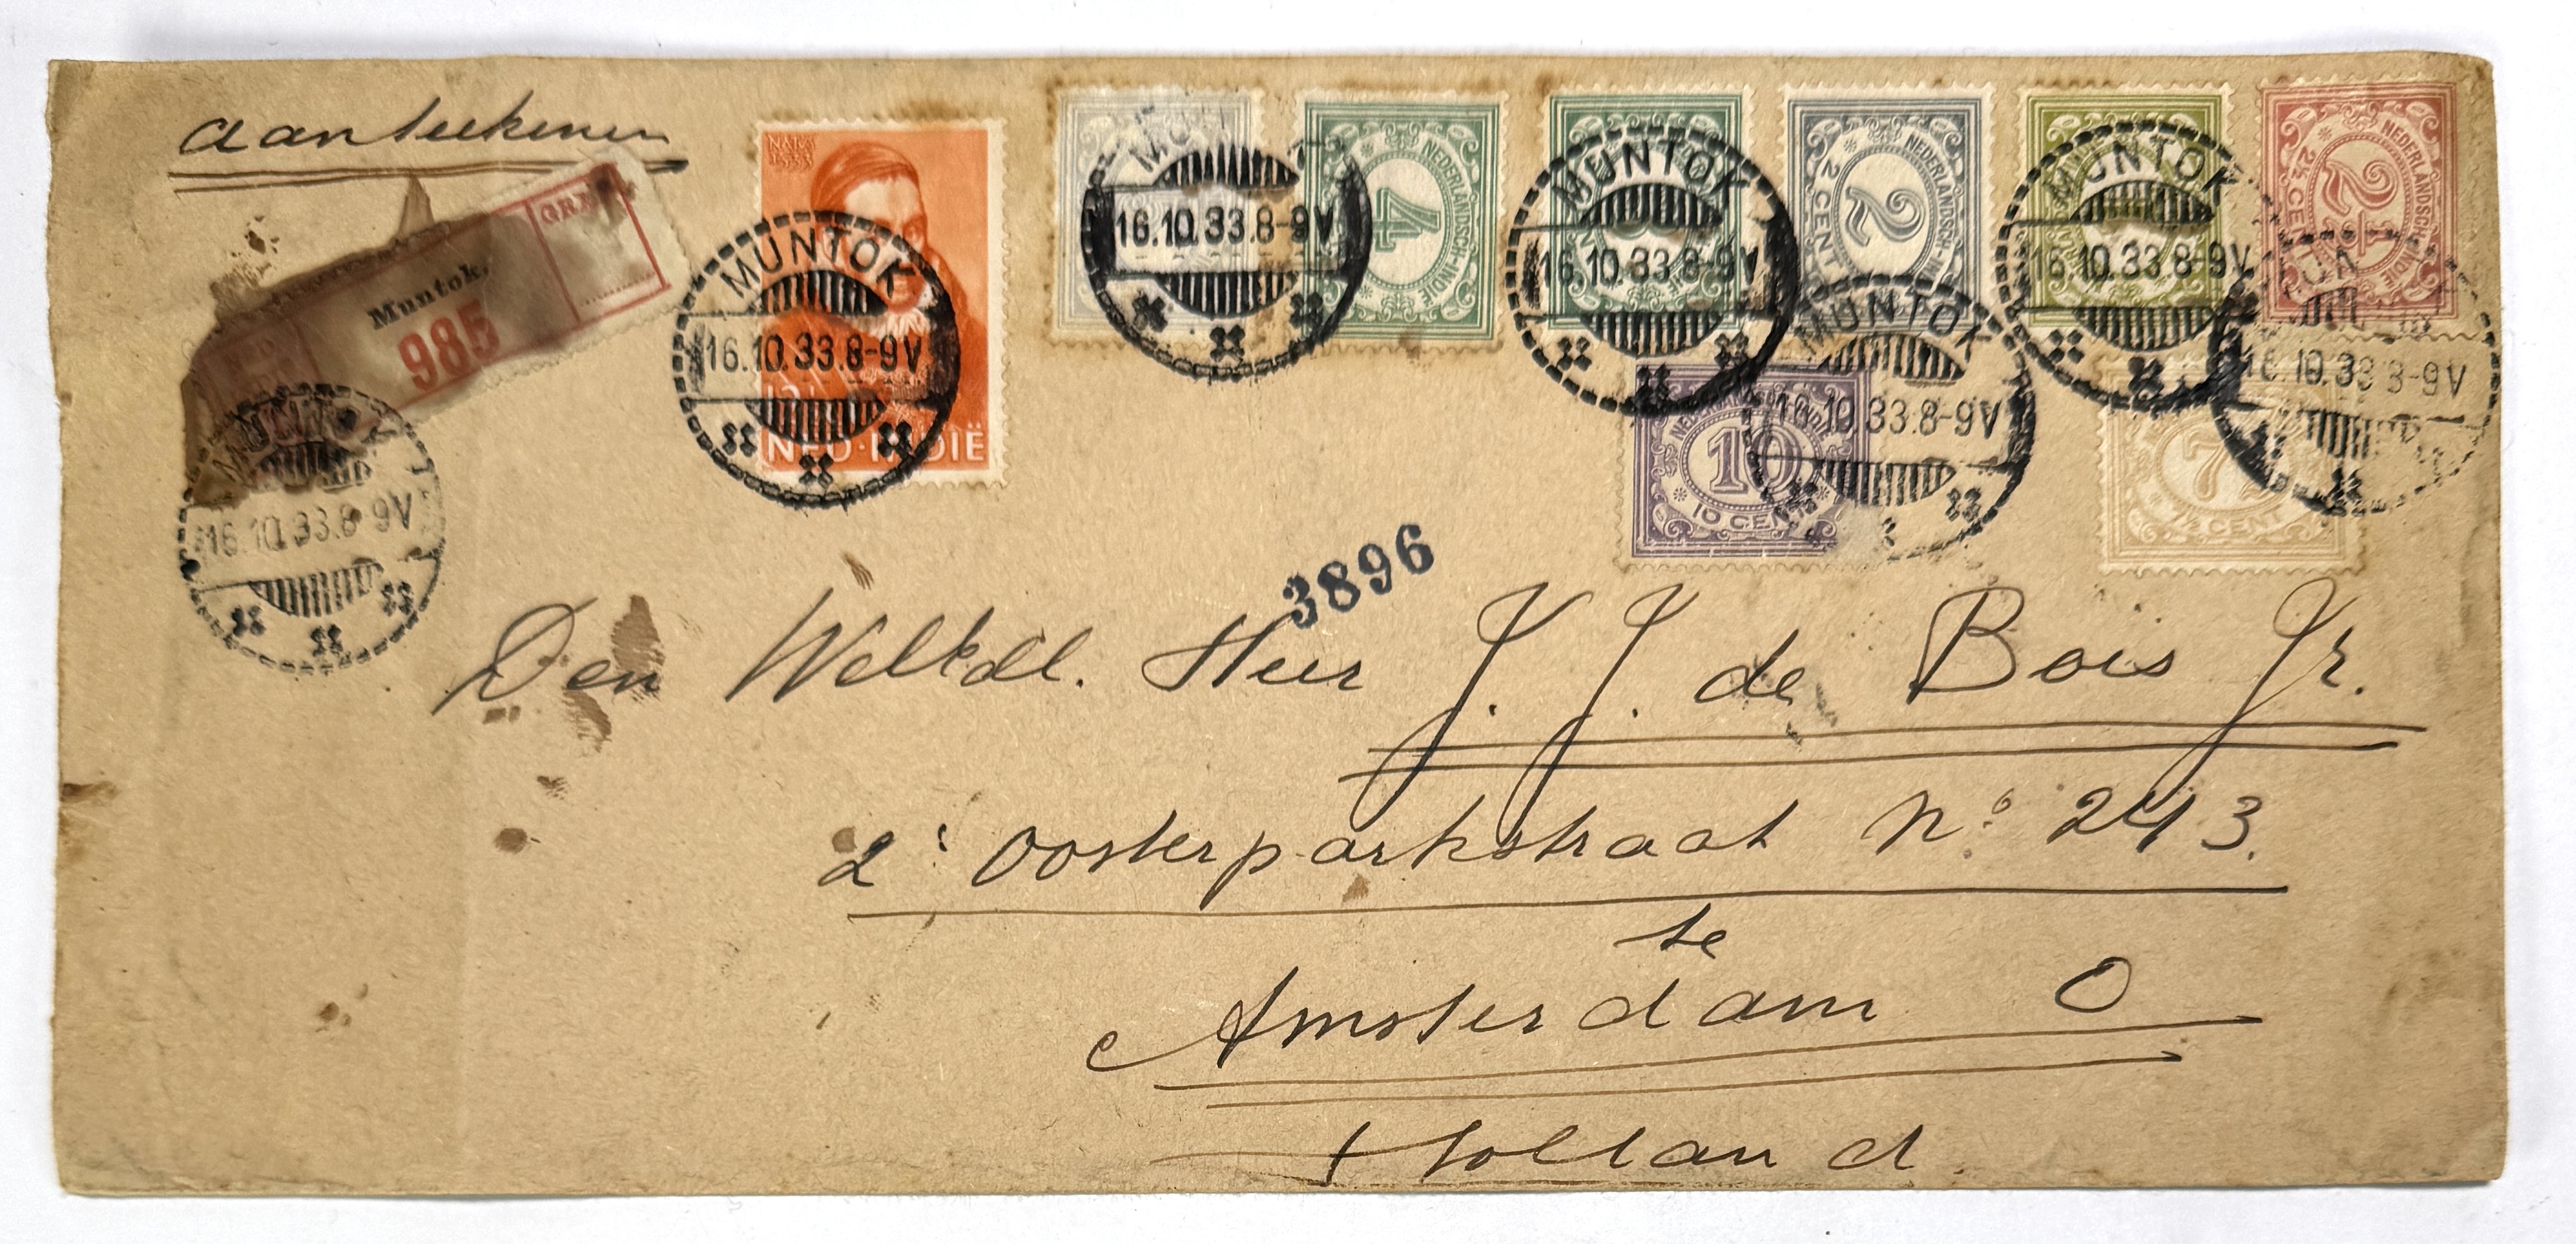 aanteekenen
Muntok.
985
MUNTOK
16.10.33.8-9V
NED·INDIË
MUNTOK
16.10.33.8-9V
16.10.33.8-9V
NEDERLANDSCH-INDIË
4
MUNTOK
16.10.33.8-9V
NEDERLANDSCH-IN
2
2 CENT
MUNTOK
16.10.33.8-9V
NEDERLANDSCH-INDIË
2½
2½ CE
MUNTOK
16.10.33.8-9V
10
10 CENT
16.10.33 8-9V
7½
CENT
3896
Den WelEdl. Heer J. J. de Bois Jr.
2e Oosterparkstraat No. 243.
te
Amsterdam O
Holland.